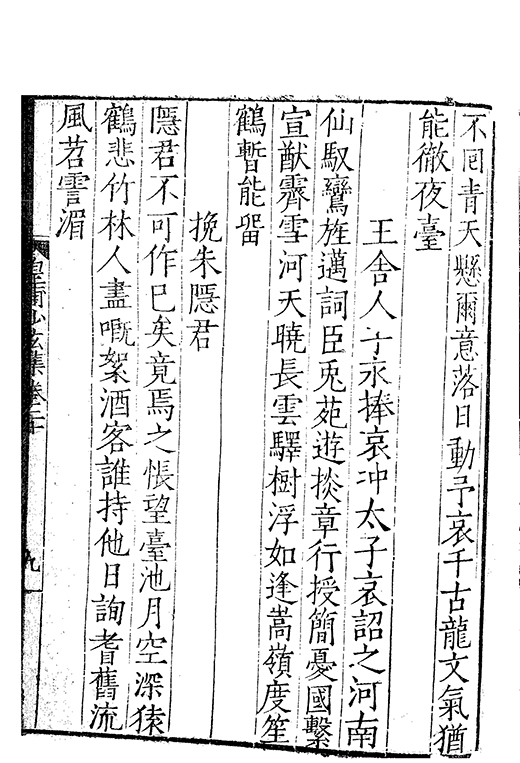 不同青天懸爾意落日動予哀千古龍文氣猶
能徹夜臺
王舍人子永捧哀冲太子哀詔之河南
仙馭鸞旌邁詞臣兎苑遊掞章行授簡憂國繫
宣猷霽雪河天曉長雲驛樹浮如逢嵩嶺度笙
鶴暫能畱
挽朱隱君
隱君不可作已矣竟焉之悵望臺池月空深猿
鶴悲竹林人盡嘅絮酒客誰持他日詢耆舊流
風苕霅湄
皇甫少玄集卷二十
九